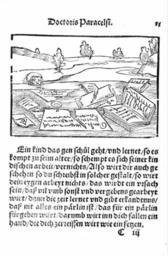 Doctoris Paracelsi.
Ein kind das gen schůl geht/vnd lernet/so es
kompt zu seim alter/so schempt es sich seiner kin
dischen arbeit/
schehen so du schreibst in solcher gestalt/so wirt
dein eygen arbeyt nichts/das wirdt ein vrsach
sein/das vil vmb sonst vnd vergebens gearbeyt
wirt/dann die zeit lernet vnd gibt erkandtnus/
das mit alles ein pärlin ist/das für ein pärlin
fürgeben wirt/darumb wirt inn dich fallen ein
hand/die dich zerreissen wirt wie ein fetzen.
C iij